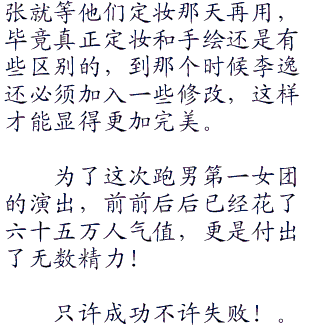 张就等他们定妆那天再用，
毕竟真正定妆和手绘还是有
些区别的，到那个时候李逸
还必须加入一些修改，这样
才能显得更加完美。
为了这次跑男第一女团
的演出，前前后后已经花了
六十五万人气值，更是付出
了无数精力！
只许成功不许失败！。